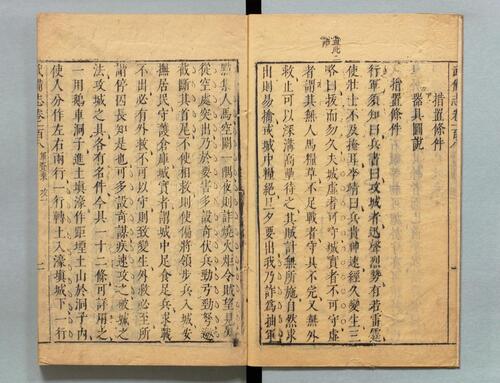 武備志卷一百八
措置條件
器具圖說
措置條件
行軍須知曰兵書曰攻城者迅聲烈勢有若雷霆
使壯士不及掩耳李靖曰兵貴神速經久變生三
畧曰拔而勿久夫城虛者可攻城實者不可守虛
者謂其無人馬糧草不足戰者守具不完又無外
救止可以深溝高壘待之其賊計無所施自然求
出則易擒或城中糧絕旦夕要出我乃詐為抽軍
點集人馬空闕一隅夜則詐燒火炬令賊望見
從空處突出乃於要害多設奇伏兵勁弓勁弩邀
截斷其首尾不使相救則使偏將領步兵入城安
撫居民守護倉庫城實者謂城中足食足兵求戰
不出必有外救不可以守則致變生外救必至所
謂停囚長知是也可多設奇謀疾速攻之破城之
法攻城之具各有名件今具一十二條可詳用之
一用鵝車洞子進土填濠作距堙土山於洞子內
使人分作左右兩行一行轉土入濠填城下一行
武備志卷一百八
軍資乘 攻一
一